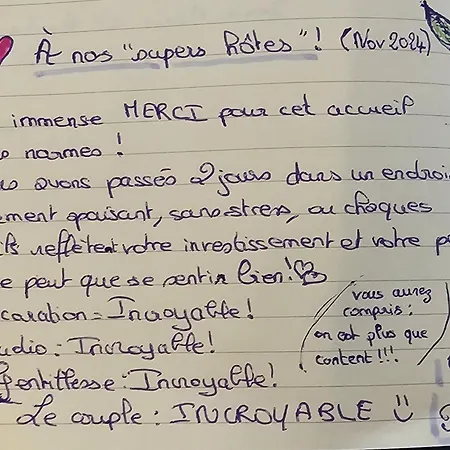 À nos "supers hôtes"! (Nov 2024)
immense MERCI pour cet accueil
normes !
avons passés 2 jours dans un endroi
ment apaisant, sans stress, où chaques
ils reflètent votre investissement et votre p
e peut que se sentir bien!
coration = Incroyable!
udio : Incroyable!
gentillesse : Incroyable!
Le couple : INCROYABLE
vous aurez
compris :
on est plus que
content !!!